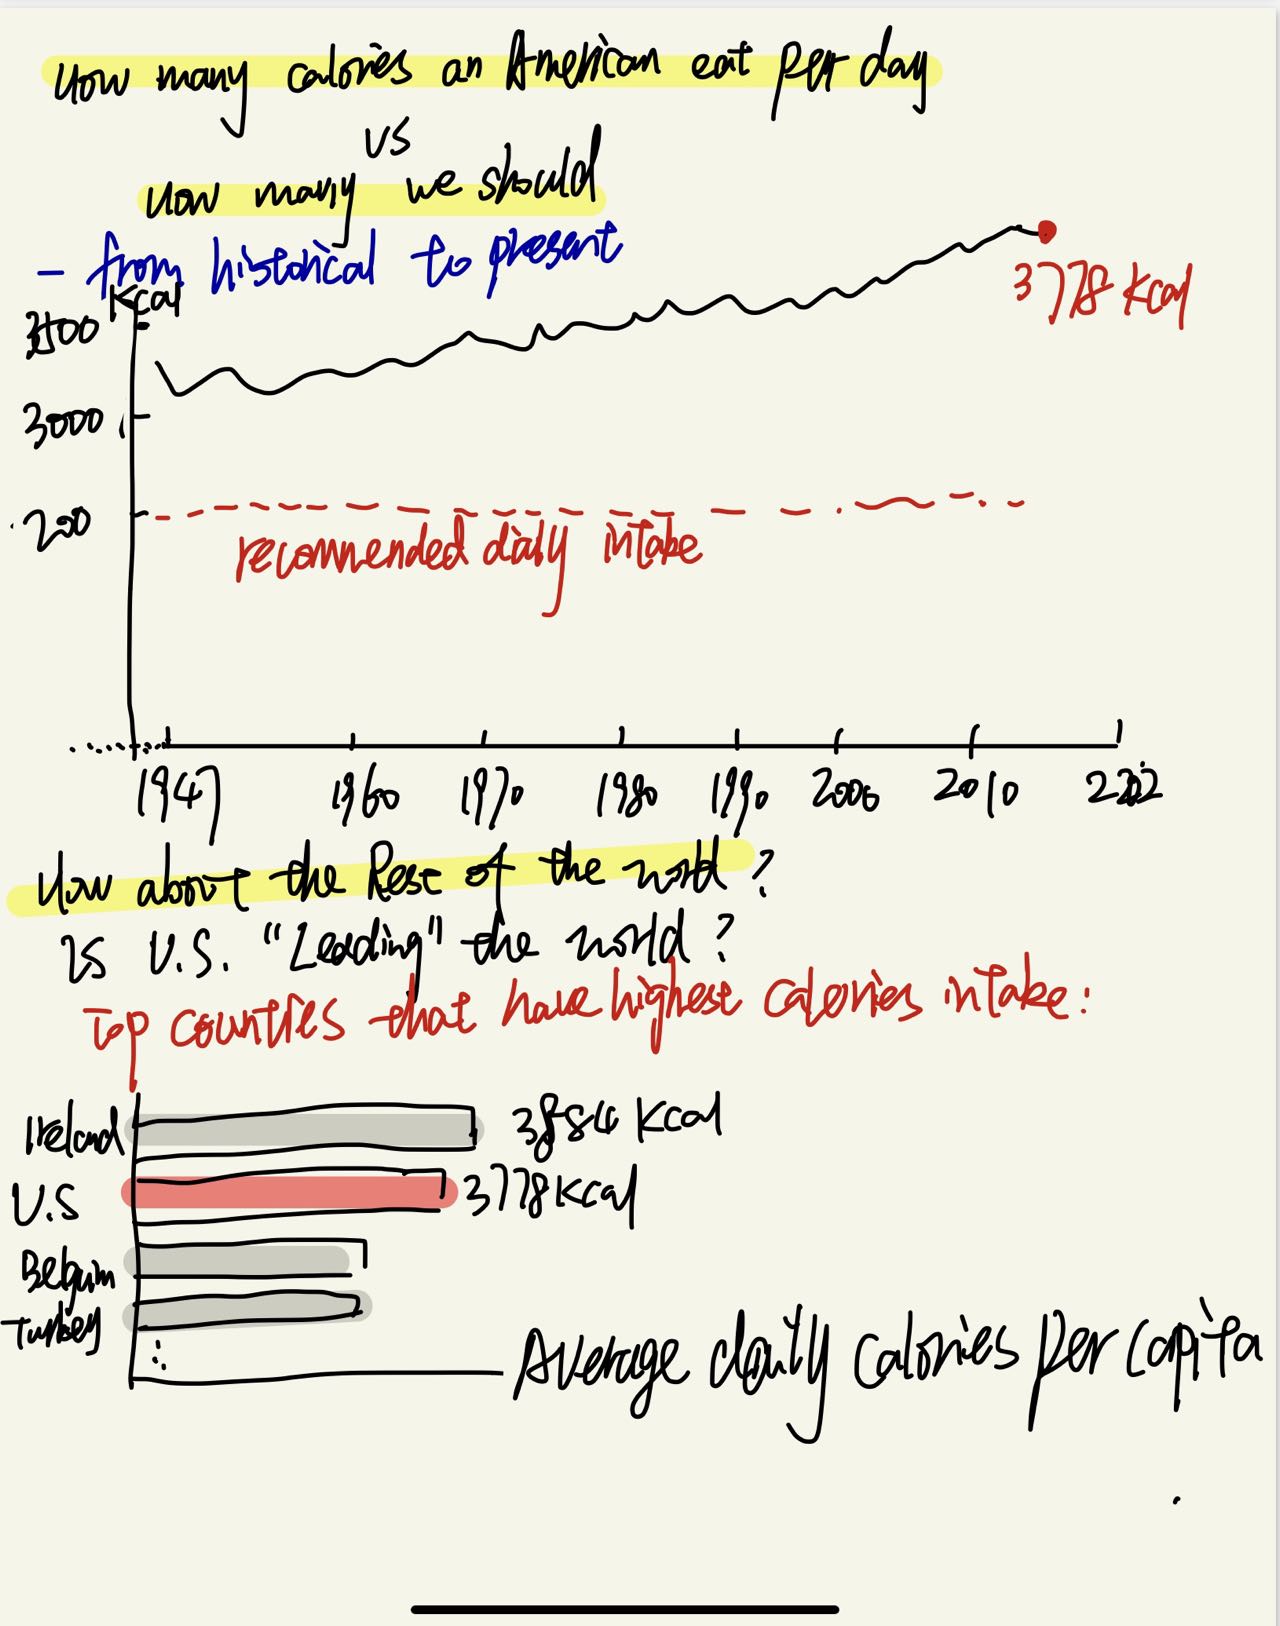 How many calories an American eat per day
vs
How many we should
- from historical to present
Kcal
3500
3000
3778 Kcal
recommended daily intake
1947 1960 1970 1980 1990 2000 2010
How about the Rest of the world?
Is U.S. "Leading" the world?
Top counties that have highest calories intake:
Ireland 3884 Kcal
U.S 3778 Kcal
Belguim
Turkey
Average daily calories per capita